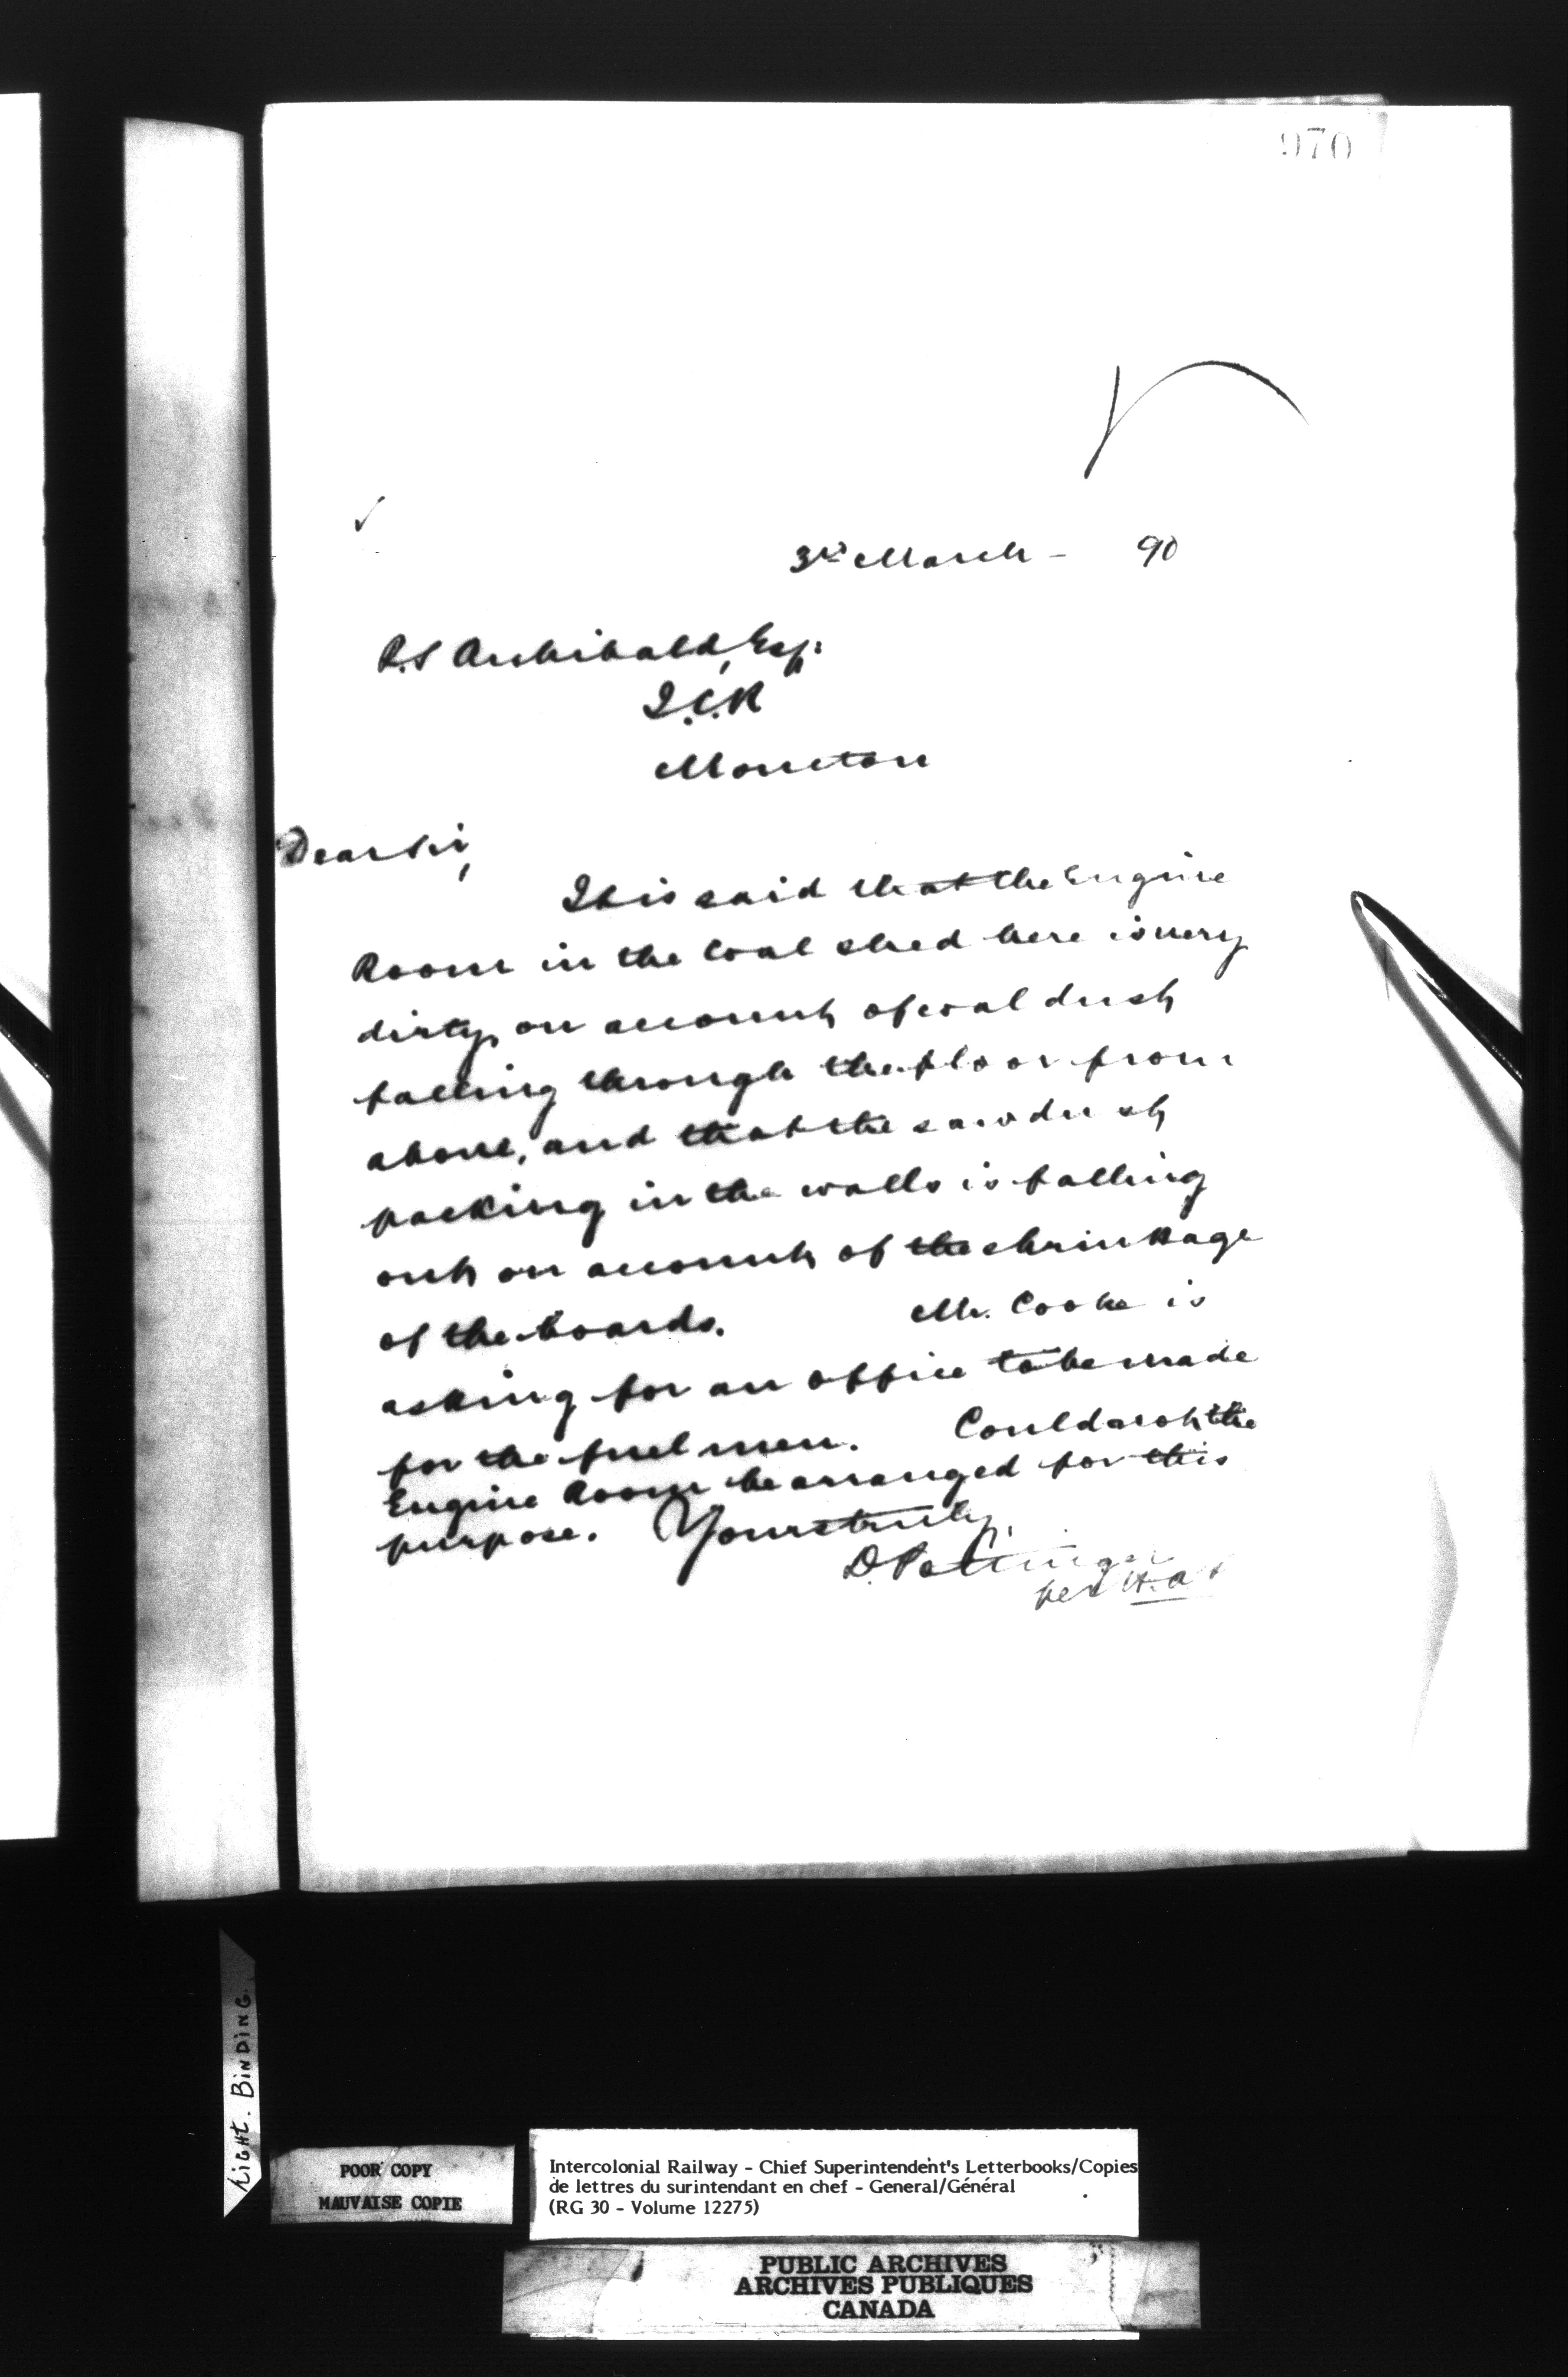 970
3rd March - 90
P.S Archibald, Esq:
I.C.R
Moncton
Dear Sir,
It is said that the Engine
Room in the Coal shed here is very
dirty, on account of coal dust
falling through the floor from
above, and that the sawdust
packing in the walls is falling
out on account of the shrinkage
of the boards. Mr. Cooke is
asking for an office to be made
for the fuel men. Could not the
Engine Room be arranged for this
purpose. Yours truly,
D. Pottinger
per H.A.
Right. BINDING.
POOR COPY
MAUVAISE COPIE
Intercolonial Railway - Chief Superintendent's Letterbooks/Copies
de lettres du surintendant en chef - General/Général
(RG 30 - Volume 12275)
PUBLIC ARCHIVES
ARCHIVES PUBLIQUES
CANADA